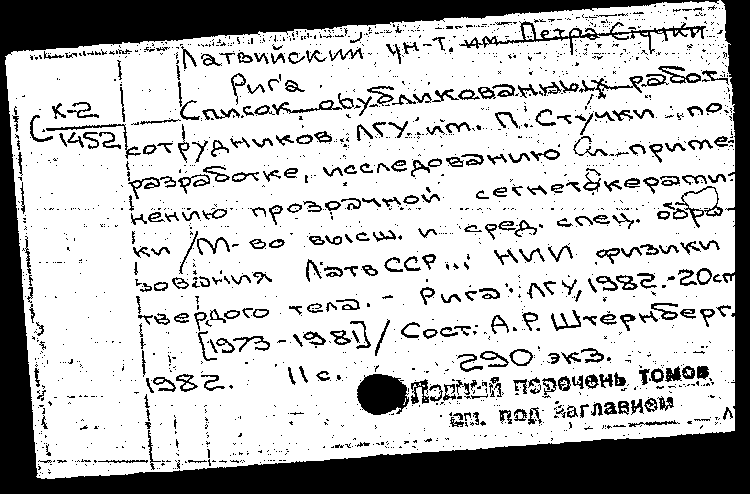 Латвийский ун-т. им. Петра Стучки
Рига
К-2
1452
Список опубликованных работ
сотрудников ЛГУ им. П. Стучки по
разработке, исследованию и приме-
нению прозрачной сегнетокерами-
ки / М-во высш. и сред. спец. обра-
зования ЛатвССР..; НИИ физики
твердого тела. - Рига: ЛГУ, 1982. - 20см
[1973-1981] / Сост. А. Р. Штернберг.
1982. 11 с. 290 экз.
Полный перечень томов
см. под заглавием